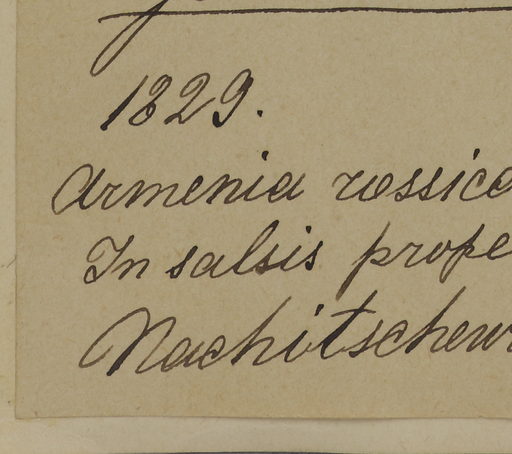 1829.
Armenia rossica
In salsis prope
Nachitschew